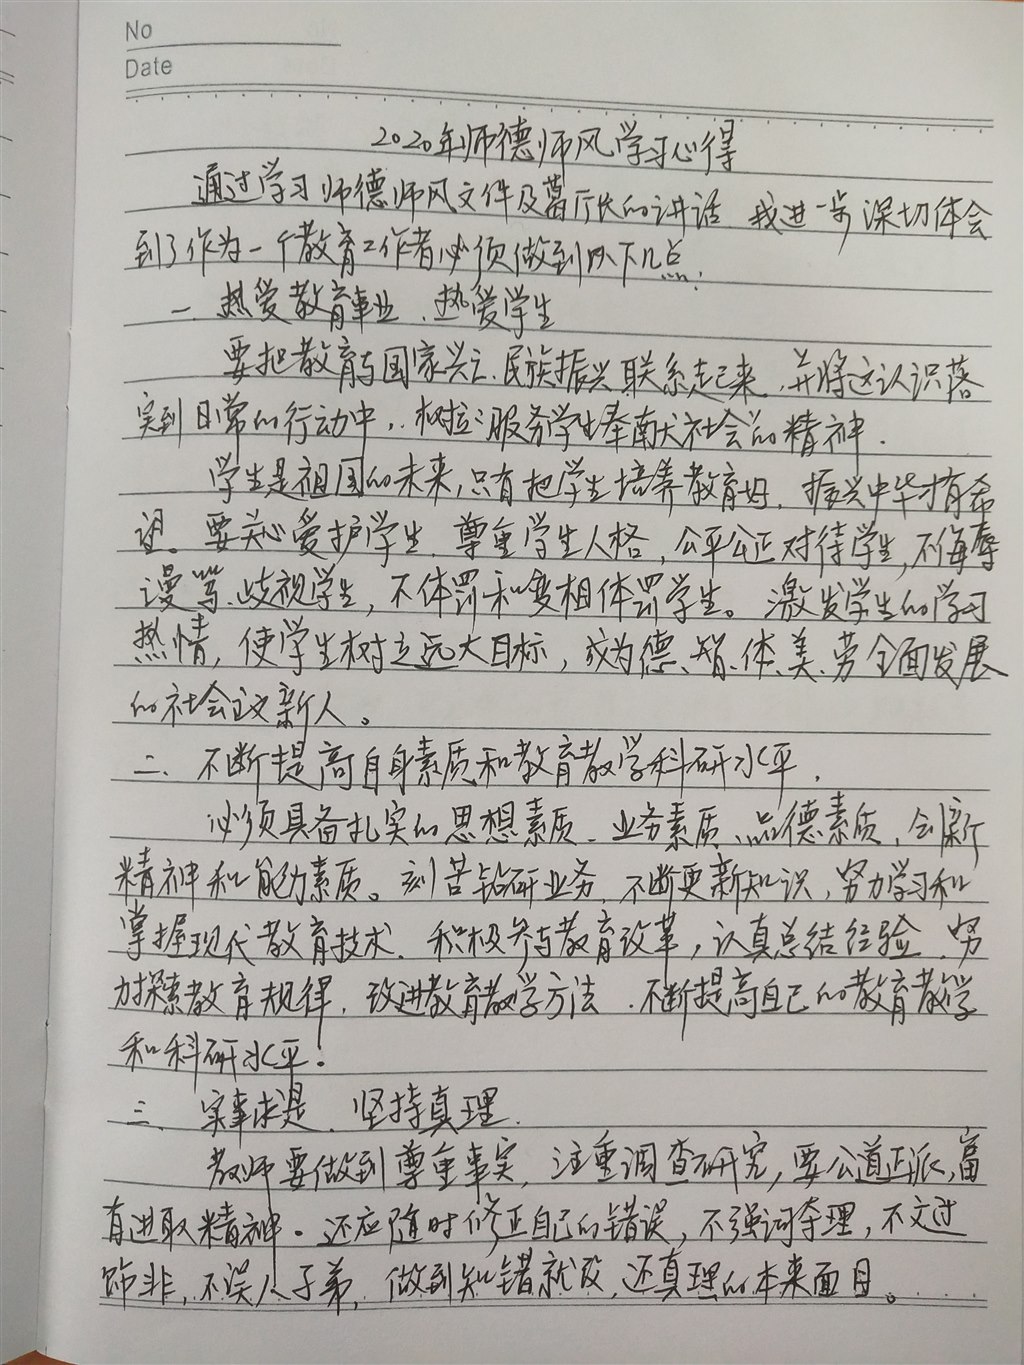 No
Date
2020年师德师风学习心得
通过学习师德师风文件及葛厅长的讲话、我进一步深切体会
到了作为一个教育工作者必须做到以下几点.
一、热爱教育事业、热爱学生
要把教育与国家兴亡、民族振兴联系起来、并将这认识落
实到日常的行动中,树立服务学生奉献社会的精神.
学生是祖国的未来,只有把学生培养教育好、振兴中华才有希
望。要关心爱护学生、尊重学生人格,公平公正对待学生,不侮辱
谩骂、歧视学生,不体罚和变相体罚学生。激发学生的学习
热情,使学生树立远大目标,成为德、智、体、美、劳全面发展
的社会主义新人。
二、不断提高自身素质和教育教学科研水平.
必须具备扎实的思想素质、业务素质、品德素质,创新
精神和能力素质。刻苦钻研业务、不断更新知识,努力学习和
掌握现代教育技术、积极参与教育改革,认真总结经验、努
力探索教育规律、改进教育教学方法、不断提高自己的教育教学
和科研水平.
三、实事求是、坚持真理.
教师要做到尊重事实,注重调查研究,要公道正派,富
有进取精神。还应随时修正自己的错误,不强词夺理,不文过
饰非,不误人子弟、做到知错就改,还真理的本来面目。